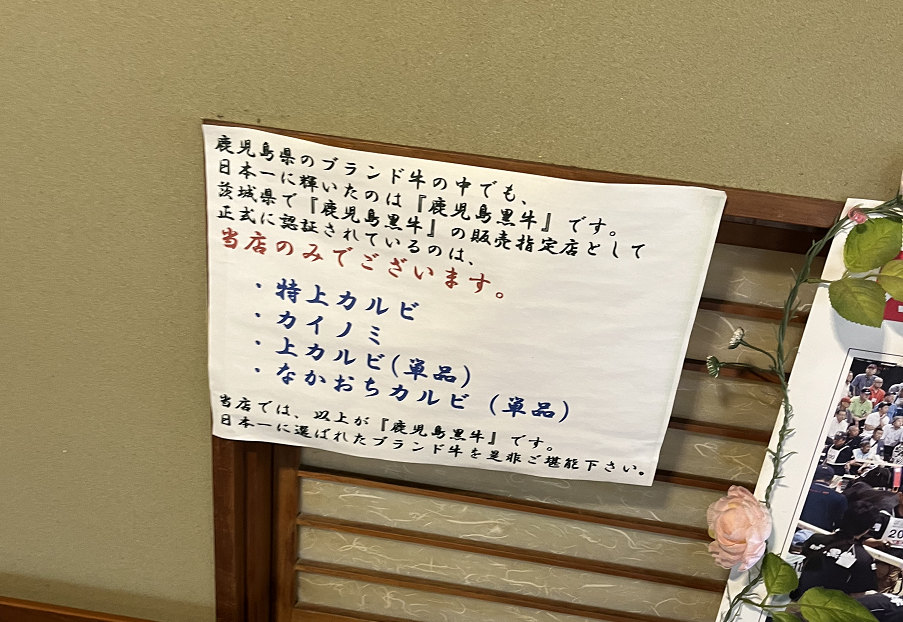 鹿児島県のブランド牛の中でも、
日本一に輝いたのは『鹿児島黒牛』です。
茨城県で『鹿児島黒牛』の販売指定店として
正式に認証されているのは、
当店のみでございます。
・特上カルビ
・カイノミ
・上カルビ(単品)
・なかおちカルビ(単品)
当店では、以上が『鹿児島黒牛』です。
日本一に選ばれたブランド牛を是非ご堪能下さい。